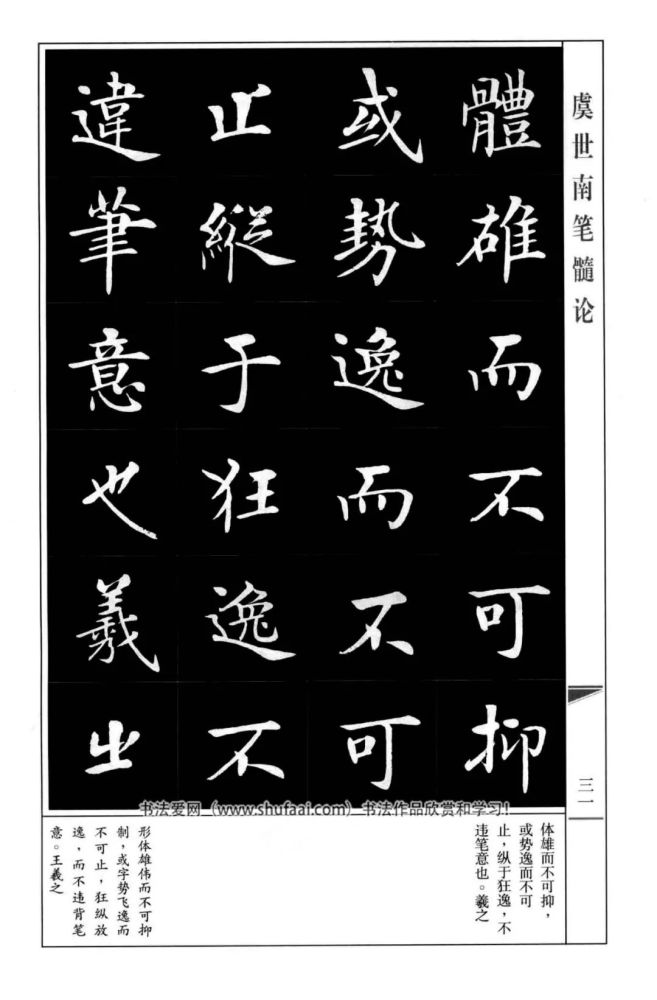 虞世南笔髓论
體雄而不可抑
或勢逸而不可
止縱于狂逸不
違筆意也羲㞢
三一
书法爱网（www.shufaai.com）书法作品欣赏和学习！
体雄而不可抑，
或势逸而不可
止，纵于狂逸，不
违笔意也。羲之
形体雄伟而不可抑
制，或字势飞逸而
不可止，狂纵放
逸，而不违背笔
意。王羲之